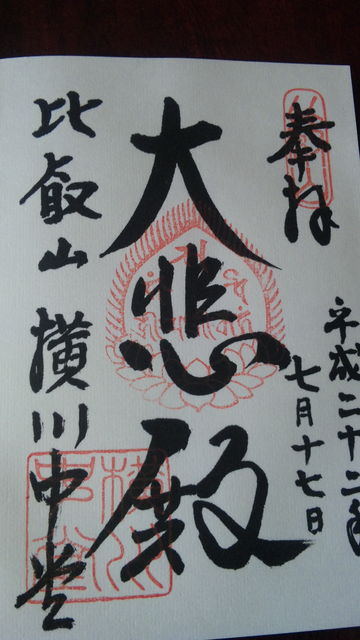 奉拝
平成二十二年
七月十七日
大悲殿
比叡山 横川中堂